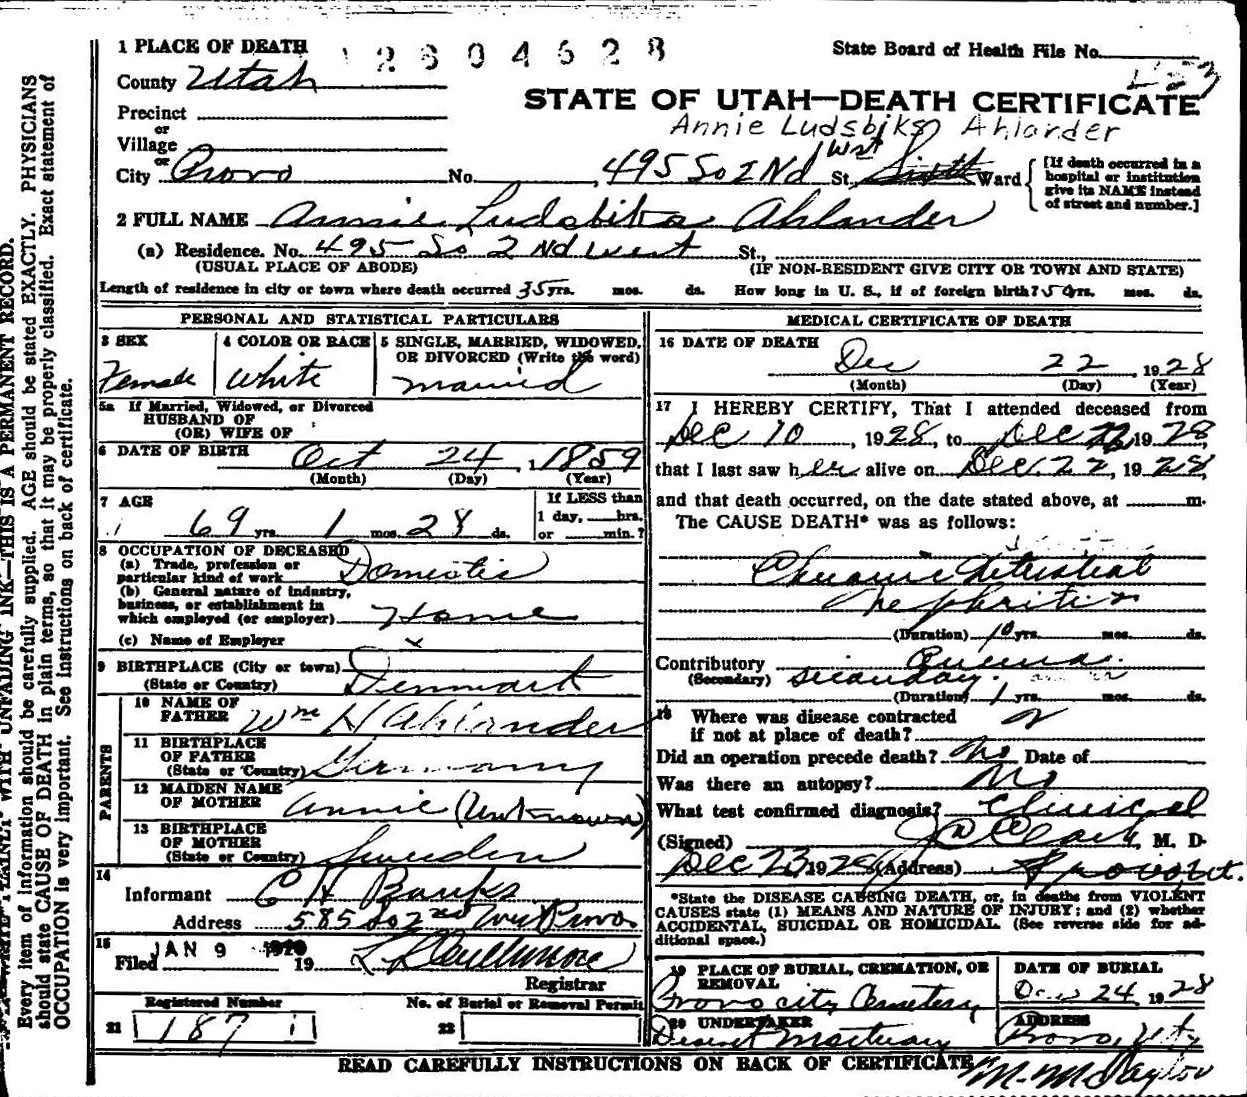 1 PLACE OF DEATH
12804628
State Board of Health File No.
County Utah
STATE OF UTAH—DEATH CERTIFICATE
Precinct
Annie Ludsbiks Ahlander
or
Village
or
West
City Provo No. 495 So 2 Nd St. Sixth Ward
[If death occurred in a hospital or institution give its NAME instead of street and number.]
2 FULL NAME Annie Ludsbika Ahlander
(a) Residence. No. 495 So 2 Nd west St.,
(USUAL PLACE OF ABODE) (IF NON-RESIDENT GIVE CITY OR TOWN AND STATE)
Length of residence in city or town where death occurred 35 yrs. mos. ds. How long in U. S., if of foreign birth? 50 yrs. mos. ds.
PERSONAL AND STATISTICAL PARTICULARS
3 SEX
Female
4 COLOR OR RACE
White
5 SINGLE, MARRIED, WIDOWED,
OR DIVORCED (Write the word)
married
5a If Married, Widowed, or Divorced
HUSBAND OF
(OR) WIFE OF
6 DATE OF BIRTH Oct 24, 1859
(Month) (Day) (Year)
7 AGE
69 yrs. 1 mos. 28 ds.
If LESS than
1 day, hrs.
or min.?
8 OCCUPATION OF DECEASED
(a) Trade, profession or
particular kind of work Domestic
(b) General nature of industry,
business, or establishment in
which employed (or employer) Home
(c) Name of Employer x
9 BIRTHPLACE (City or town)
(State or Country) Denmark
PARENTS
10 NAME OF
FATHER Wm H Ahlander
11 BIRTHPLACE
OF FATHER
(State or Country) Germany
12 MAIDEN NAME
OF MOTHER Annie (Unknown)
13 BIRTHPLACE
OF MOTHER
(State or Country) Sweden
14
Informant C H Banks
Address 585 So 2nd West Provo
15 JAN 9
Filed 19
Registrar
Registered Number
21 187
No. of Burial or Removal Permit
22
MEDICAL CERTIFICATE OF DEATH
16 DATE OF DEATH
Dec 22, 1928
(Month) (Day) (Year)
17 I HEREBY CERTIFY, That I attended deceased from
Dec 10, 1928, to Dec 22, 1928,
that I last saw her alive on Dec. 22, 1928,
and that death occurred, on the date stated above, at m.
The CAUSE DEATH* was as follows:
Chronic Intersticial
Nephritis
(Duration) 10 yrs. mos. ds.
Contributory
(Secondary) secondary.
(Duration) 1 yrs. mos. ds.
18 Where was disease contracted
if not at place of death?
Did an operation precede death? No Date of
Was there an autopsy? No
What test confirmed diagnosis? Clinical
(Signed) Clark, M. D.
Dec 23 1928 (Address) Provo Ut.
*State the DISEASE CAUSING DEATH, or, in deaths from VIOLENT
CAUSES state (1) MEANS AND NATURE OF INJURY; and (2) whether
ACCIDENTAL, SUICIDAL OR HOMICIDAL. (See reverse side for ad-
ditional space.)
19 PLACE OF BURIAL, CREMATION, OR
REMOVAL
Provo city Cemetery
DATE OF BURIAL
Dec 24 1928
20 UNDERTAKER
Deseret Mortuary
ADDRESS
Provo, Utg
READ CAREFULLY INSTRUCTIONS ON BACK OF CERTIFICATE
WRITE PLAINLY WITH UNFADING INK—THIS IS A PERMANENT RECORD.
Every item of information should be carefully supplied. AGE should be stated EXACTLY. PHYSICIANS
should state CAUSE OF DEATH in plain terms, so that it may be properly classified. Exact statement of
OCCUPATION is very important. See instructions on back of certificate.